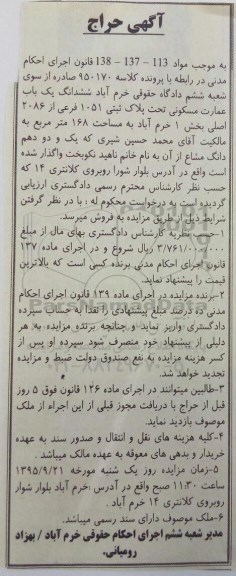 آگهی حراج
به موجب مواد 113 – 137 – 138 قانون اجرای احکام
مدنی در رابطه با پرونده کلاسه ۹۵۰۱۷۰ صادره از سوی
شعبه ششم دادگاه حقوقی خرم آباد ششدانگ یک باب
عمارت مسکونی تحت پلاک ثبتی ۱۰۵۱ فرعی از ۲۰۸۶
اصلی بخش ۱ خرم آباد به مساحت ۱۶۸ متر مربع به
مالکیت آقای محمد حسین شیری که یک و دو دهم
دانگ مشاع از آن به نام خانم ناهید نکوبخت واگذار شده
است واقع در آدرس بلوار شورا روبروی کلانتری ۱۴ که
حسب نظر کارشناس محترم رسمی دادگستری ارزیابی
گردیده است به درخواست محکوم له : با در نظر گرفتن
شرایط ذیل از طریق مزایده به فروش میرسد.
۱–حسب نظریه کارشناس دادگستری بهای مال از مبلغ
۳/۷۶۱/۰۰۰/۰۰۰ ریال شروع و در اجرای ماده ۱۳۷
قانون اجرای احکام مدنی برنده کسی است که بالاترین
قیمت را پیشنهاد نماید.
۲–برنده مزایده در اجرای ماده ۱۳۹ قانون اجرای احکام
مدنی ده درصد مبلغ پیشنهادی را نقدا به حساب سپرده
دادگستری واریز نماید و چنانچه برنده مزایده به هر
دلیلی از پیشنهاد خود منصرف شود سپرده او پس از
کسر هزینه مزایده به نفع صندوق دولت ضبط و مزایده
تجدید خواهد شد.
۳–طالبین میتوانند در اجرای ماده ۱۲۶ قانون فوق ۵ روز
قبل از حراج با دریافت مجوز قبلی از این اجراء از ملک
موصوف بازدید نماید.
۴–کلیه هزینه های نقل و انتقال و صدور سند به عهده
خریدار و بدهی های معوقه به عهده مالک میباشد .
۵–زمان مزایده روز یک شنبه مورخه ۱۳۹۵/۹/۲۱
ساعت ۱۱:۳۰ صبح واقع در آدرس :خرم آباد بلوار شوار
روبروی کلانتری ۱۴ خرم آباد .
۶–ملک موصوف دارای سند رسمی میباشد.
مدیر شعبه ششم اجرای احکام حقوقی خرم آباد / بهزاد
رومیانی.